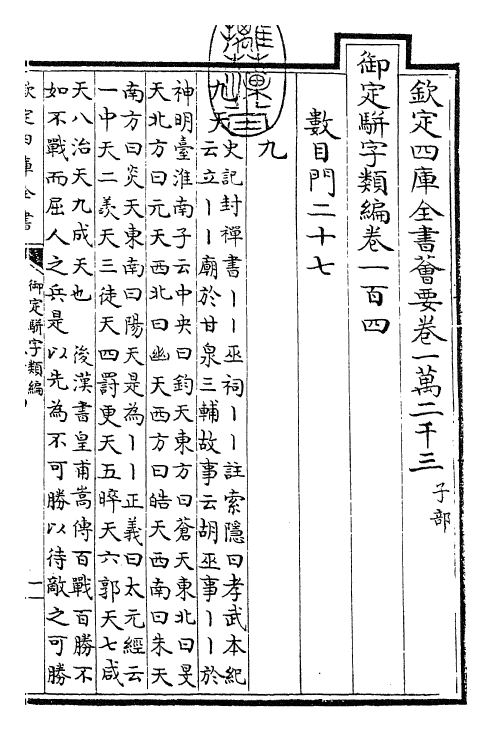 欽定四庫全書薈要卷一萬二千三 子部
御定駢字類編卷一百四
數目門二十七
九
九天 史記封禪書丨丨巫祠丨丨註索隱曰孝武本紀
云立丨丨廟於甘泉三輔故事云胡巫事丨丨於
神明臺淮南子云中央曰鈞天東方曰蒼天東北曰旻
天北方曰元天西北曰幽天西方曰皓天西南曰朱天
南方曰炎天東南曰陽天是為丨丨正義曰太元經云
一中天二羡天三徒天四罰更天五晬天六郭天七咸
天八治天九成天也 後漢書皇甫嵩傳百戰百勝不
如不戰而屈人之兵是以先為不可勝以待敵之可勝
欽定四庫全書
御定駢字類編
一